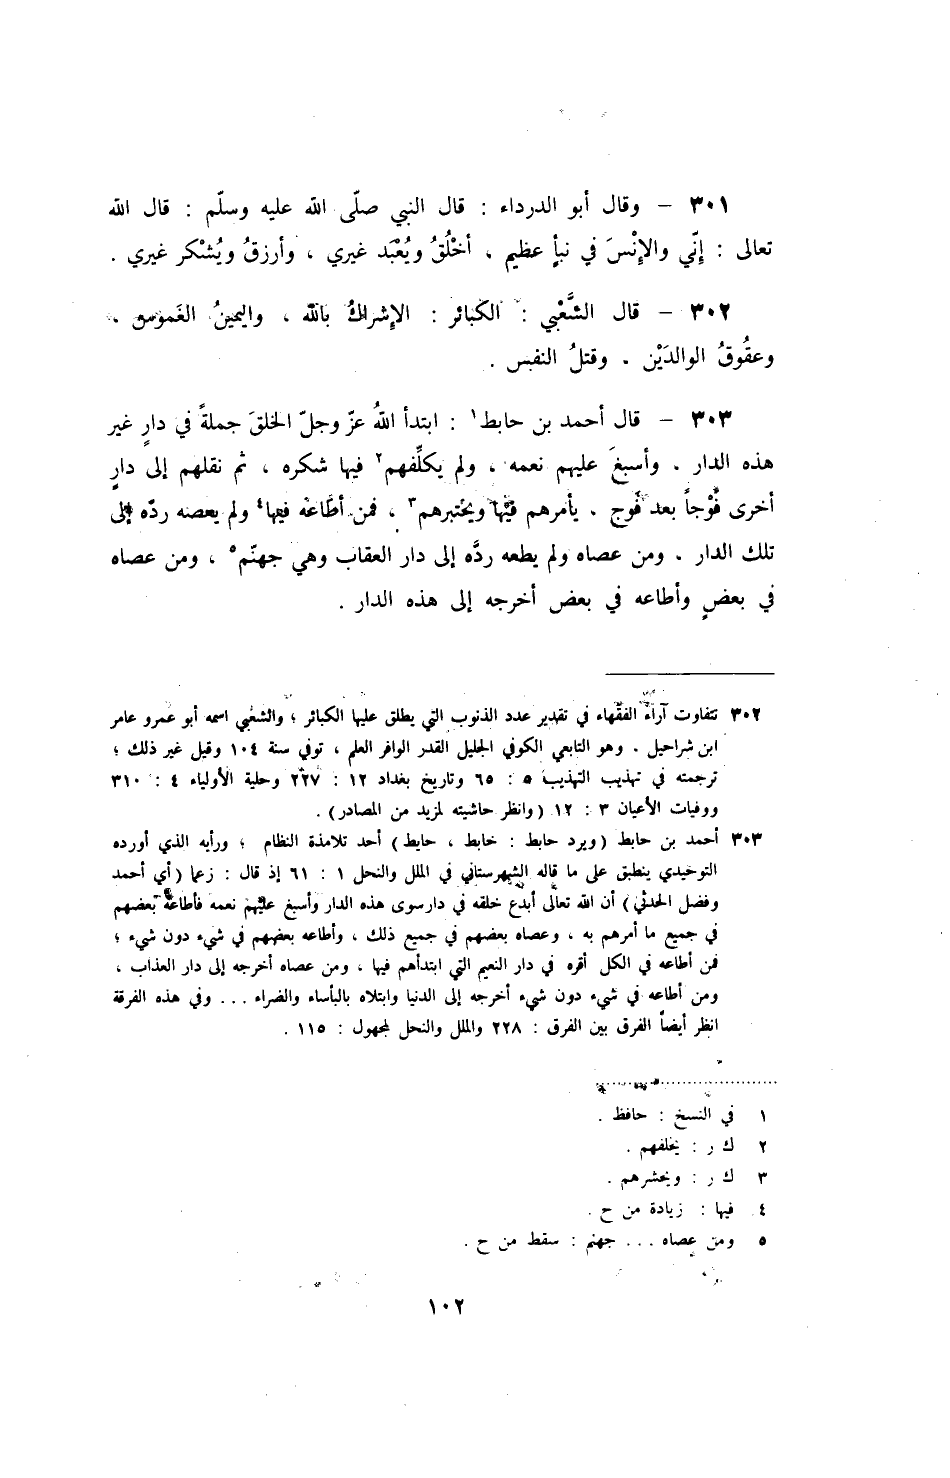 ٣٠١ – وقال أبو الدرداء : قال النبي صلّى الله عليه وسلّم : قال الله
تعالى : إنّي والإنْسَ في نبأٍ عظيم ، أخْلُقُ ويُعْبَد غيري ، وأرزقُ ويُشْكر غيري .
٣٠٢ – قال الشَّعْبي : الكبائر : الإشراكُ بالله ، واليمينُ الغَموس ،
وعقُوقُ الوالدَيْن . وقتلُ النفس .
٣٠٣ – قال أحمد بن حابط١ : ابتدأ اللهُ عزّ وجلّ الخلقَ جملةً في دارٍ غير
هذه الدار . وأسبغَ عليهم نعمه ، ولم يكلِّفهم٢ فيها شكره ، ثم نقلهم إلى دارٍ
أخرى فَوْجاً بعد فَوج . يأمرهم فيها ويختبرهم٣ ، فمن أطاعه فيها٤ ولم يعصه ردّه إلى
تلك الدار . ومن عصاه ولم يطعه ردَّه إلى دار العقاب وهي جهنّم٥ ، ومن عصاه
في بعضٍ وأطاعه في بعض أخرجه إلى هذه الدار .
٣٠٢ تتفاوت آراء الفقهاء في تقدير عدد الذنوب التي يطلق عليها الكبائر ؛ والشعبي اسمه أبو عمرو عامر
ابن شراحيل . وهو التابعي الكوفي الجليل القدر الوافر العلم ، توفي سنة ١٠٤ وقيل غير ذلك ؛
ترجمته في تهذيب التهذيب ٥ : ٦٥ وتاريخ بغداد ١٢ : ٢٢٧ وحلية الأولياء ٤ : ٣١٠
ووفيات الأعيان ٣ : ١٢ (وانظر حاشيته لمزيد من المصادر) .
٣٠٣ أحمد بن حابط (ويرد حابط : خابط ، حايط) أحد تلامذة النظام ؛ ورأيه الذي أورده
التوحيدي ينطبق على ما قاله الشهرستاني في الملل والنحل ١ : ٦١ إذ قال : زعما (أي أحمد
وفضل الحدثي) أن الله تعالى أبدع خلقه في دار سوى هذه الدار وأسبغ عليهم نعمه فأطاعه بعضهم
في جميع ما أمرهم به ، وعصاه بعضهم في جميع ذلك ، وأطاعه بعضهم في شيء دون شيء ؛
فمن أطاعه في الكل أقره في دار النعيم التي ابتدأهم فيها ، ومن عصاه أخرجه إلى دار العذاب ،
ومن أطاعه في شيء دون شيء أخرجه إلى الدنيا وابتلاه بالبأساء والضراء ... وفي هذه الفرقة
انظر أيضاً الفرق بين الفرق : ٢٢٨ والملل والنحل لمجهول : ١١٥ .
١ في النسخ : حافظ .
٢ ك ر : يخلفهم .
٣ ك ر : ويحشرهم .
٤ فيها : زيادة من ح .
٥ ومن عصاه ... جهنم : سقط من ح .
١٠٢